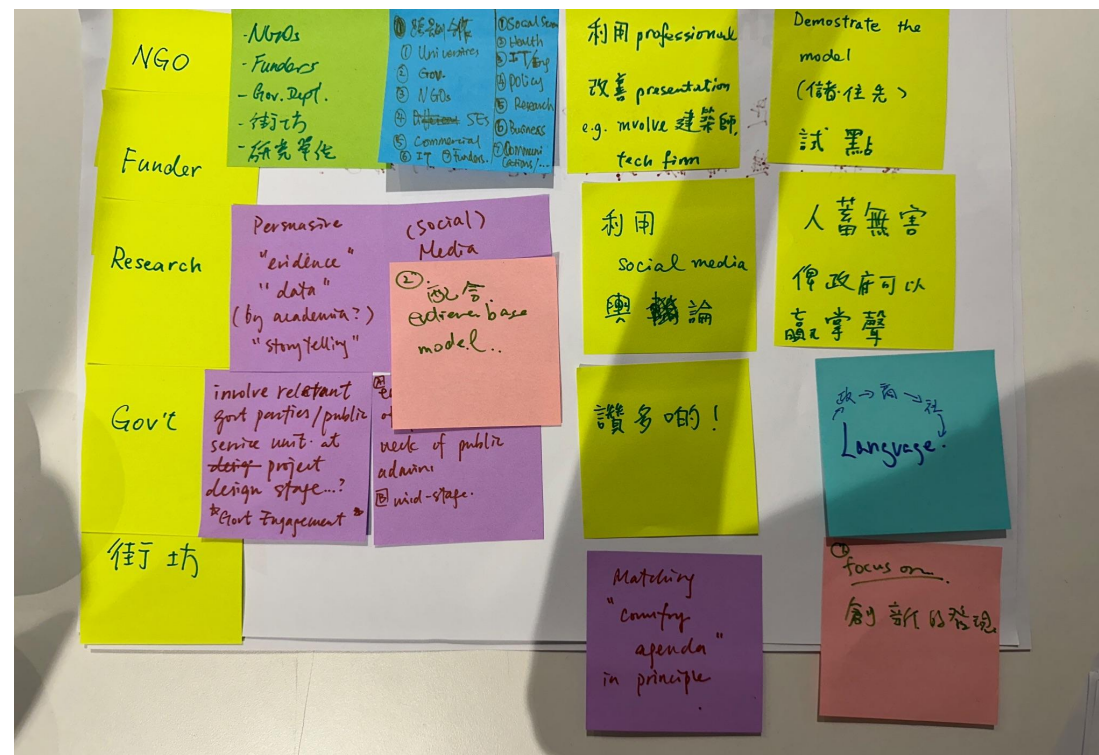 NGO
Funder
Research
Gov't
街坊
- NGOs
- Funders
- Gov. Dept.
- 街坊
- 研究單位
① Universities
② Gov.
③ NGOs
④ SEs
⑤ Commercial
⑥ IT ⑦ Funders.
① Social
② Health
③ IT/
④ Policy
⑤ Research
⑥ Business
⑦
利用 professional
改善 presentation
e.g. involve 建築師,
tech firm
Demostrate the
model
試點
Persuasive
"evidence"
"data"
(by academia?)
"storytelling"
(Social)
Media
②
base
model..
利用
social media
輿論
人畜無害
俾政府可以
贏掌聲
involve relevant
govt parties/public
service unit at
project
design stage...?
"Govt Engagement"
A
neck of public
admin
B mid-stage.
讚多啲!
政→商→社
Language.
Matching
"country
agenda"
in principle
focus on
創新的發現